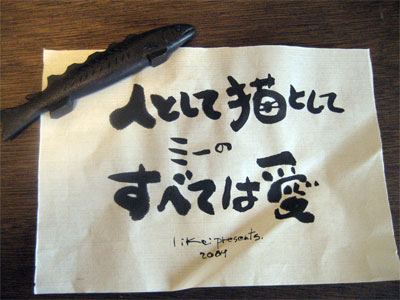 人として猫として
ミーの
すべては愛
likei presents.
2004